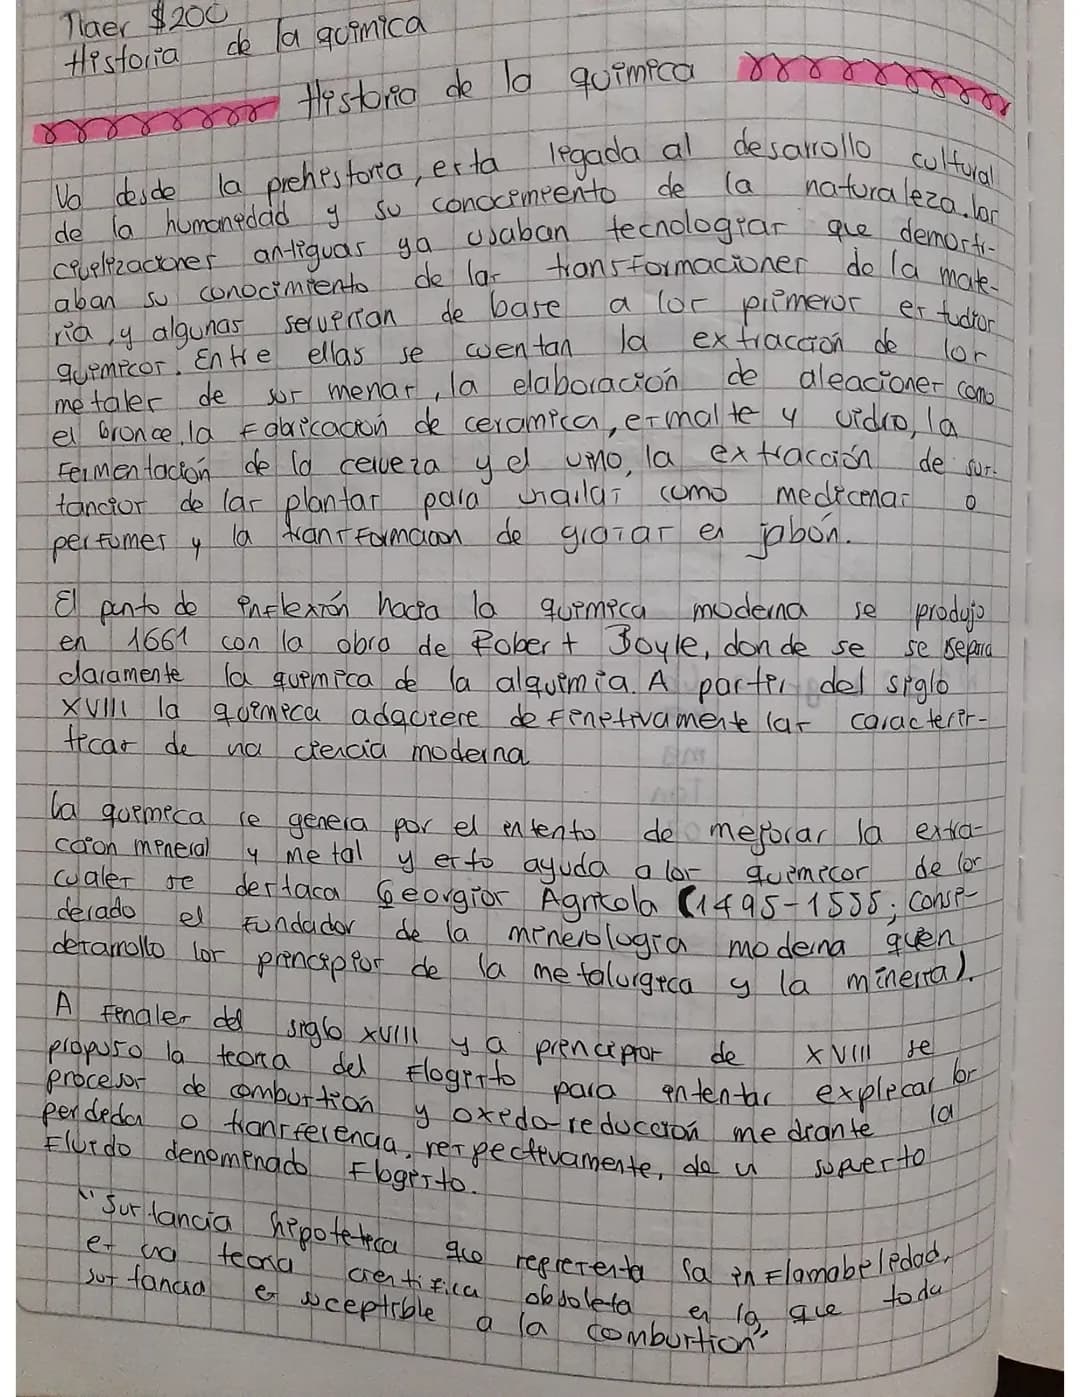 Traer $200
Historia de la quimica
Historia de la quimica
Va desde la prehistoria, esta ligada al desarrollo cultural
de la humanidad y su conocimiento de la naturaleza. las
civilizaciones antiguas ya usaban tecnologias que demostr-
aban su conocimiento de las transformaciones de la mate-
ria, y algunas servirian de base a los primeros estudios
quimicos. Entre ellas se cuentan la extracción de los
metales de sus menas, la elaboración de aleaciones como
el bronce, la fabricación de ceramica, esmalte y vidrio, la
fermentación de la cerveza y el vino, la extracción de sus-
tancias de las plantas para usarlas como medicinas o
perfumes y la transformacion de grasas en jabón.
El punto de inflexión hacia la quimica moderna se produjo
en 1661 con la obra de Robert Boyle, donde se se separa
claramente la quimica de la alquimia. A partir del siglo
XVIII la quimica adquiere definitivamente las caracteris-
ticas de una ciencia moderna
La quimica se genera por el intento de mejorar la extra-
ccion mineral y metal y esto ayuda a los quimicos de los
cuales se destaca Georgios Agricola (1495-1555; consi-
derado el fundador de la minerologia moderna quien
desarrollo los principios de la metalurgica y la mineria).
A finales del siglo XVIII y a principios de XVIII se
propuso la teoria del flogisto para intentar explicar los
procesos de combustion y oxido-reduccion mediante la
perdida o transferencia, respectivamente, de un supuesto
Fluido denominado Flogisto.
"Sustancia hipotetica que representa la inflamabilidad,
es una teoria cientifica obsoleta en la que toda
sustancia es suceptible a la combustion"